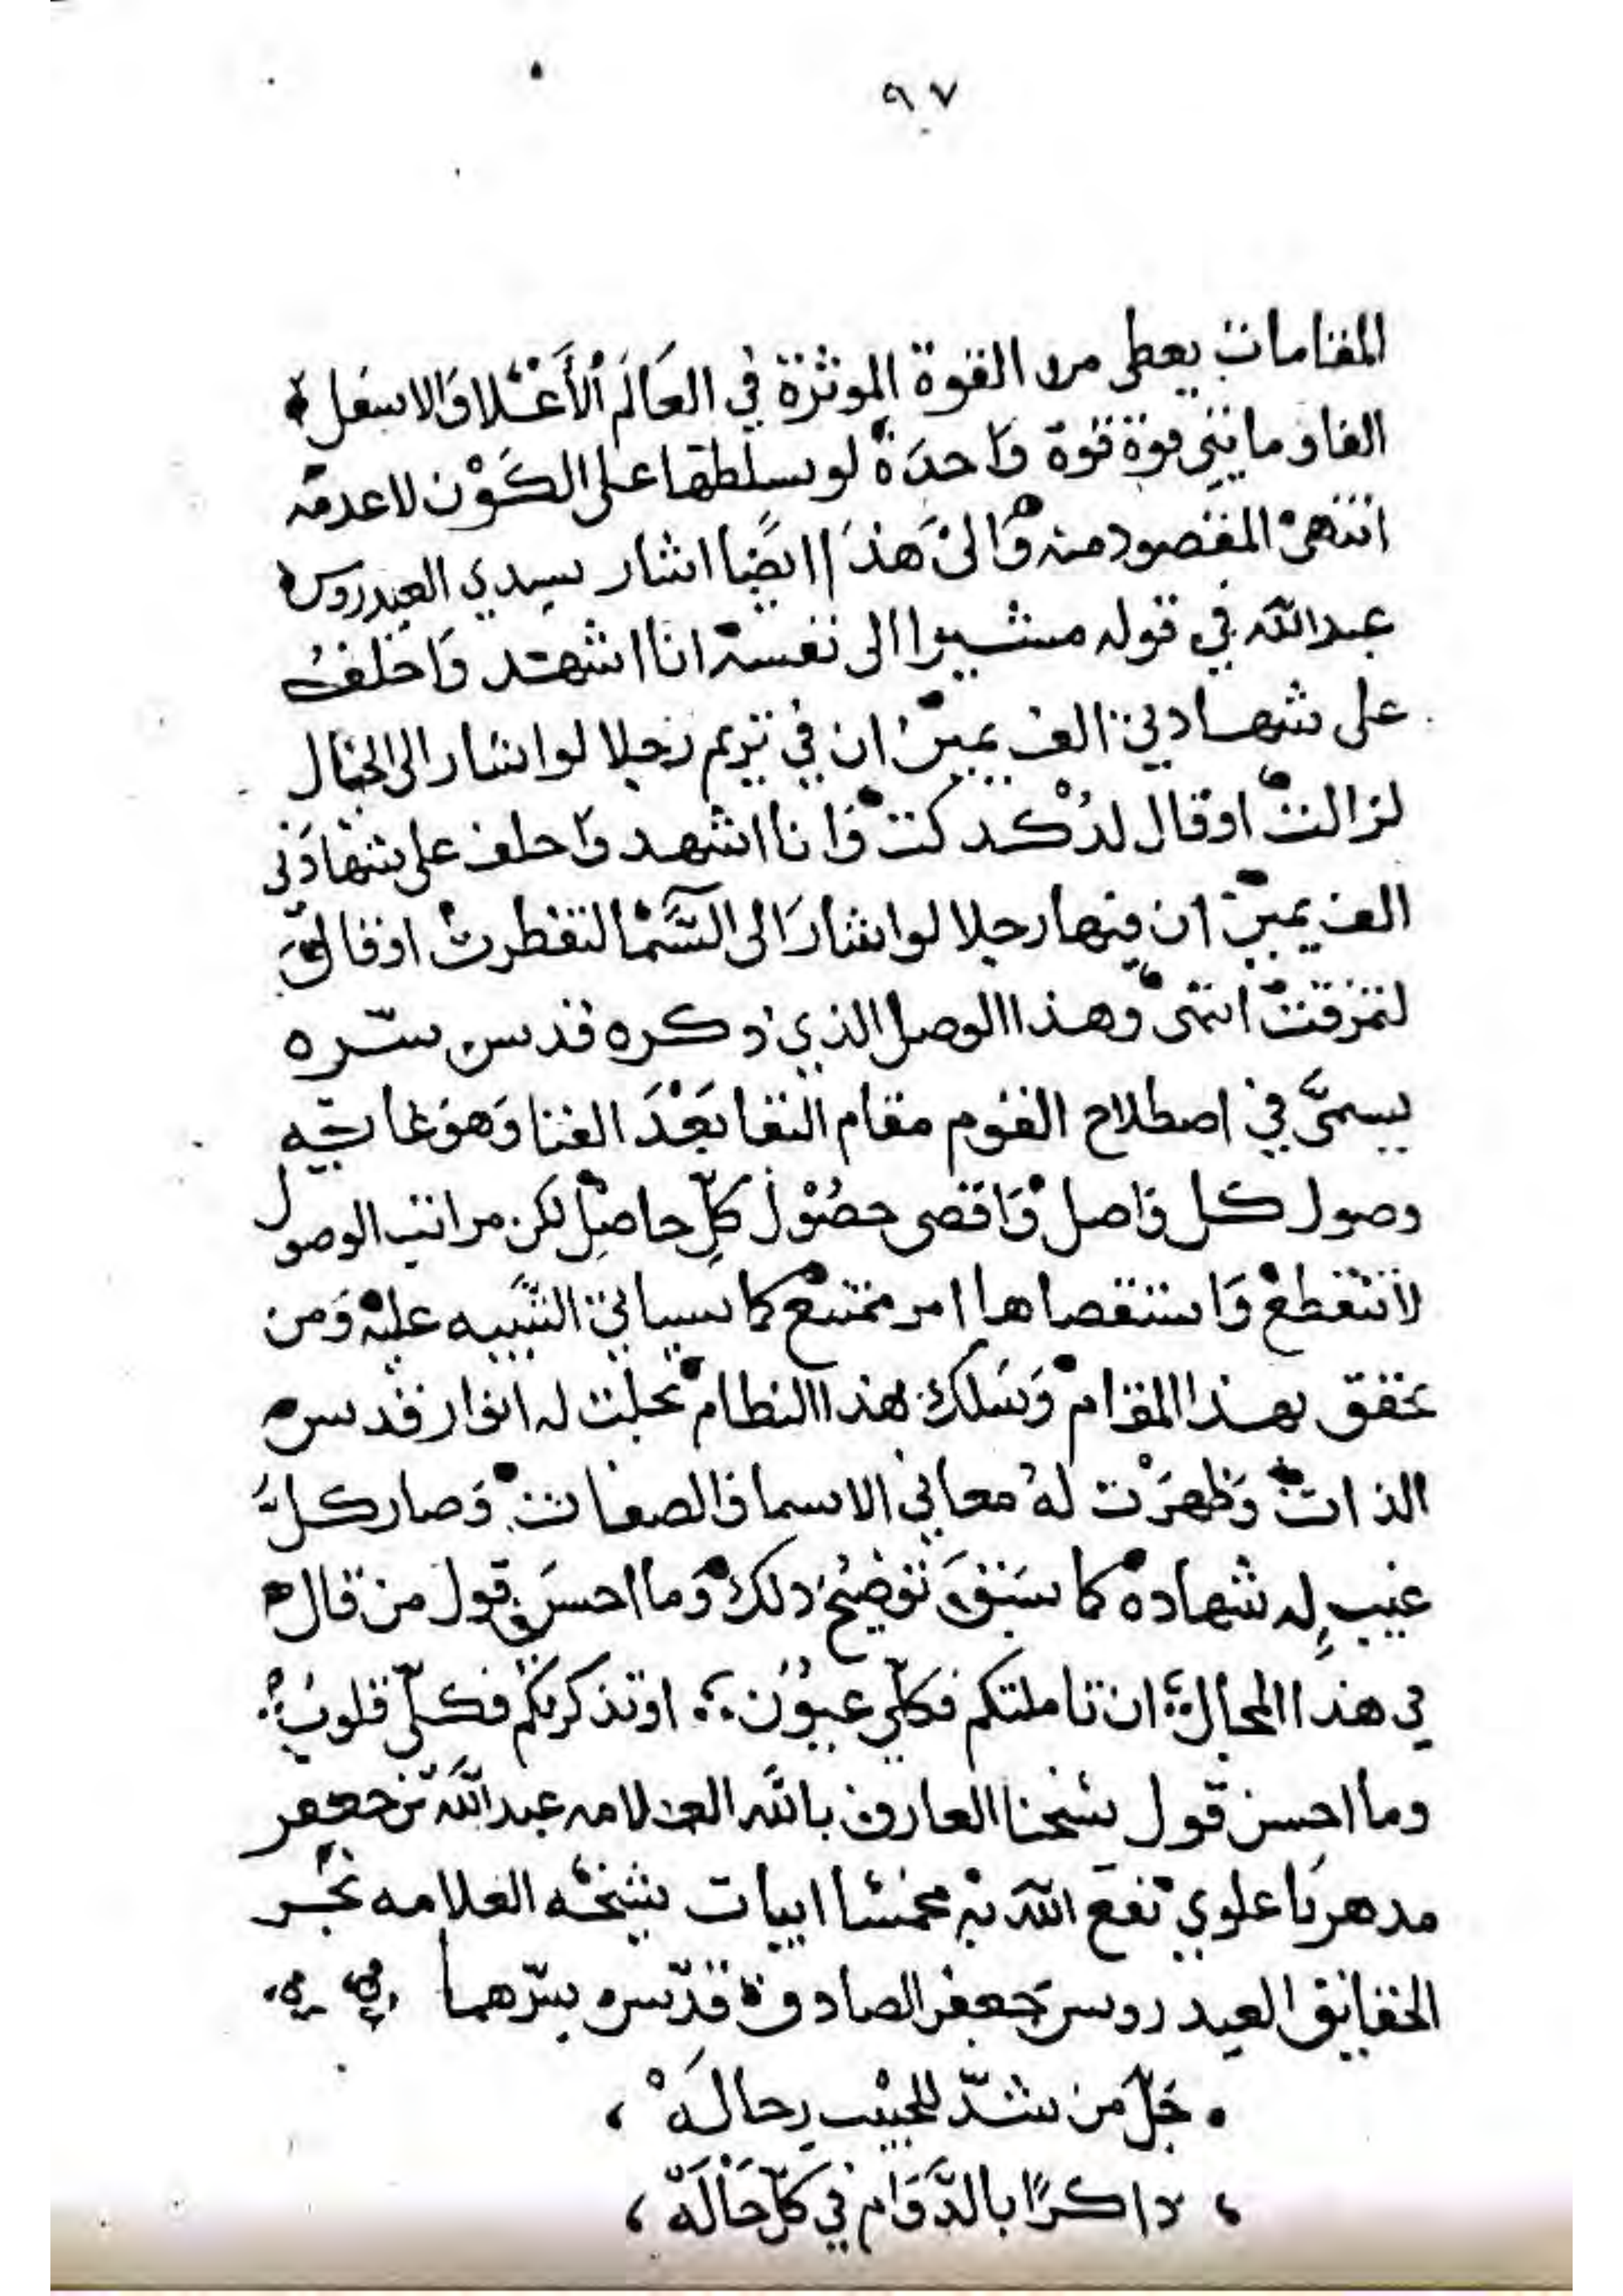 ٩٧
المقامات يعطى من القوة الموثرة في العَالَم الأَعْلا وَالاسفل
الفا وماىتى قوة قوة وَاحدَة لو سلطها على الكَوْن لاعدمه
انتهى المقصود منه وَالىْ هَذَا ايضًا اشار سيدي العيدروس
عبدالله في قوله مشيرا الى نفسه انا اشهد وَاحلف
على شهادتي الف يمين ان في تريم رجلا لو اشار الى الجبال
لزالت او قال لدُكْ دكت وَانا اشهد وَاحلف على شهادتي
الف يمين ان فيها رجلا لو اشارَ الى السَّما لتفطرت او قال
لتمزقت انتهى وهذا الوصل الذي ذكره قدس سّره
يسمىَّ في اصطلاح القوم مقام البقا بَعْدَ الفنا وَهوَ غاية
وصول كل وَاصل وَاقصى حصُوْل كلّ حاصِل لكن مراتب الوصول
لا تنقطع وَاستقصاها امر ممتنع كما سياتي التنبيه عليه وَمن
تحقق بهذا المقام وَسَلك هذا النظام تجلت له انوار قدس
الذات وَظهرَت لهُ معاني الاسما والصفات وَصار كلَّ
غيب له شهادة كما سَبَقَ توضيح ذلك وَما احسَن قول من قال
في هذا المجال ؛ ان تاملتكم فكلّي عيوُن ؛ او تذكرتكم فكلّي قلوبُ
وما احسن قول شيخنا العارف بالله العلامه عبدالله بن جعفر
مدهر باعلوي نفع الله به مخمسًا ابيات شيخه العلامه بحر
الحقايق العيدروس جَعفر الصادق قدّس سّرهما
جَلّ مَن شدّ للحبيب رحالَهْ ،
، ذاكرًا بالدَّوَام في كلّ حَالَهْ ،